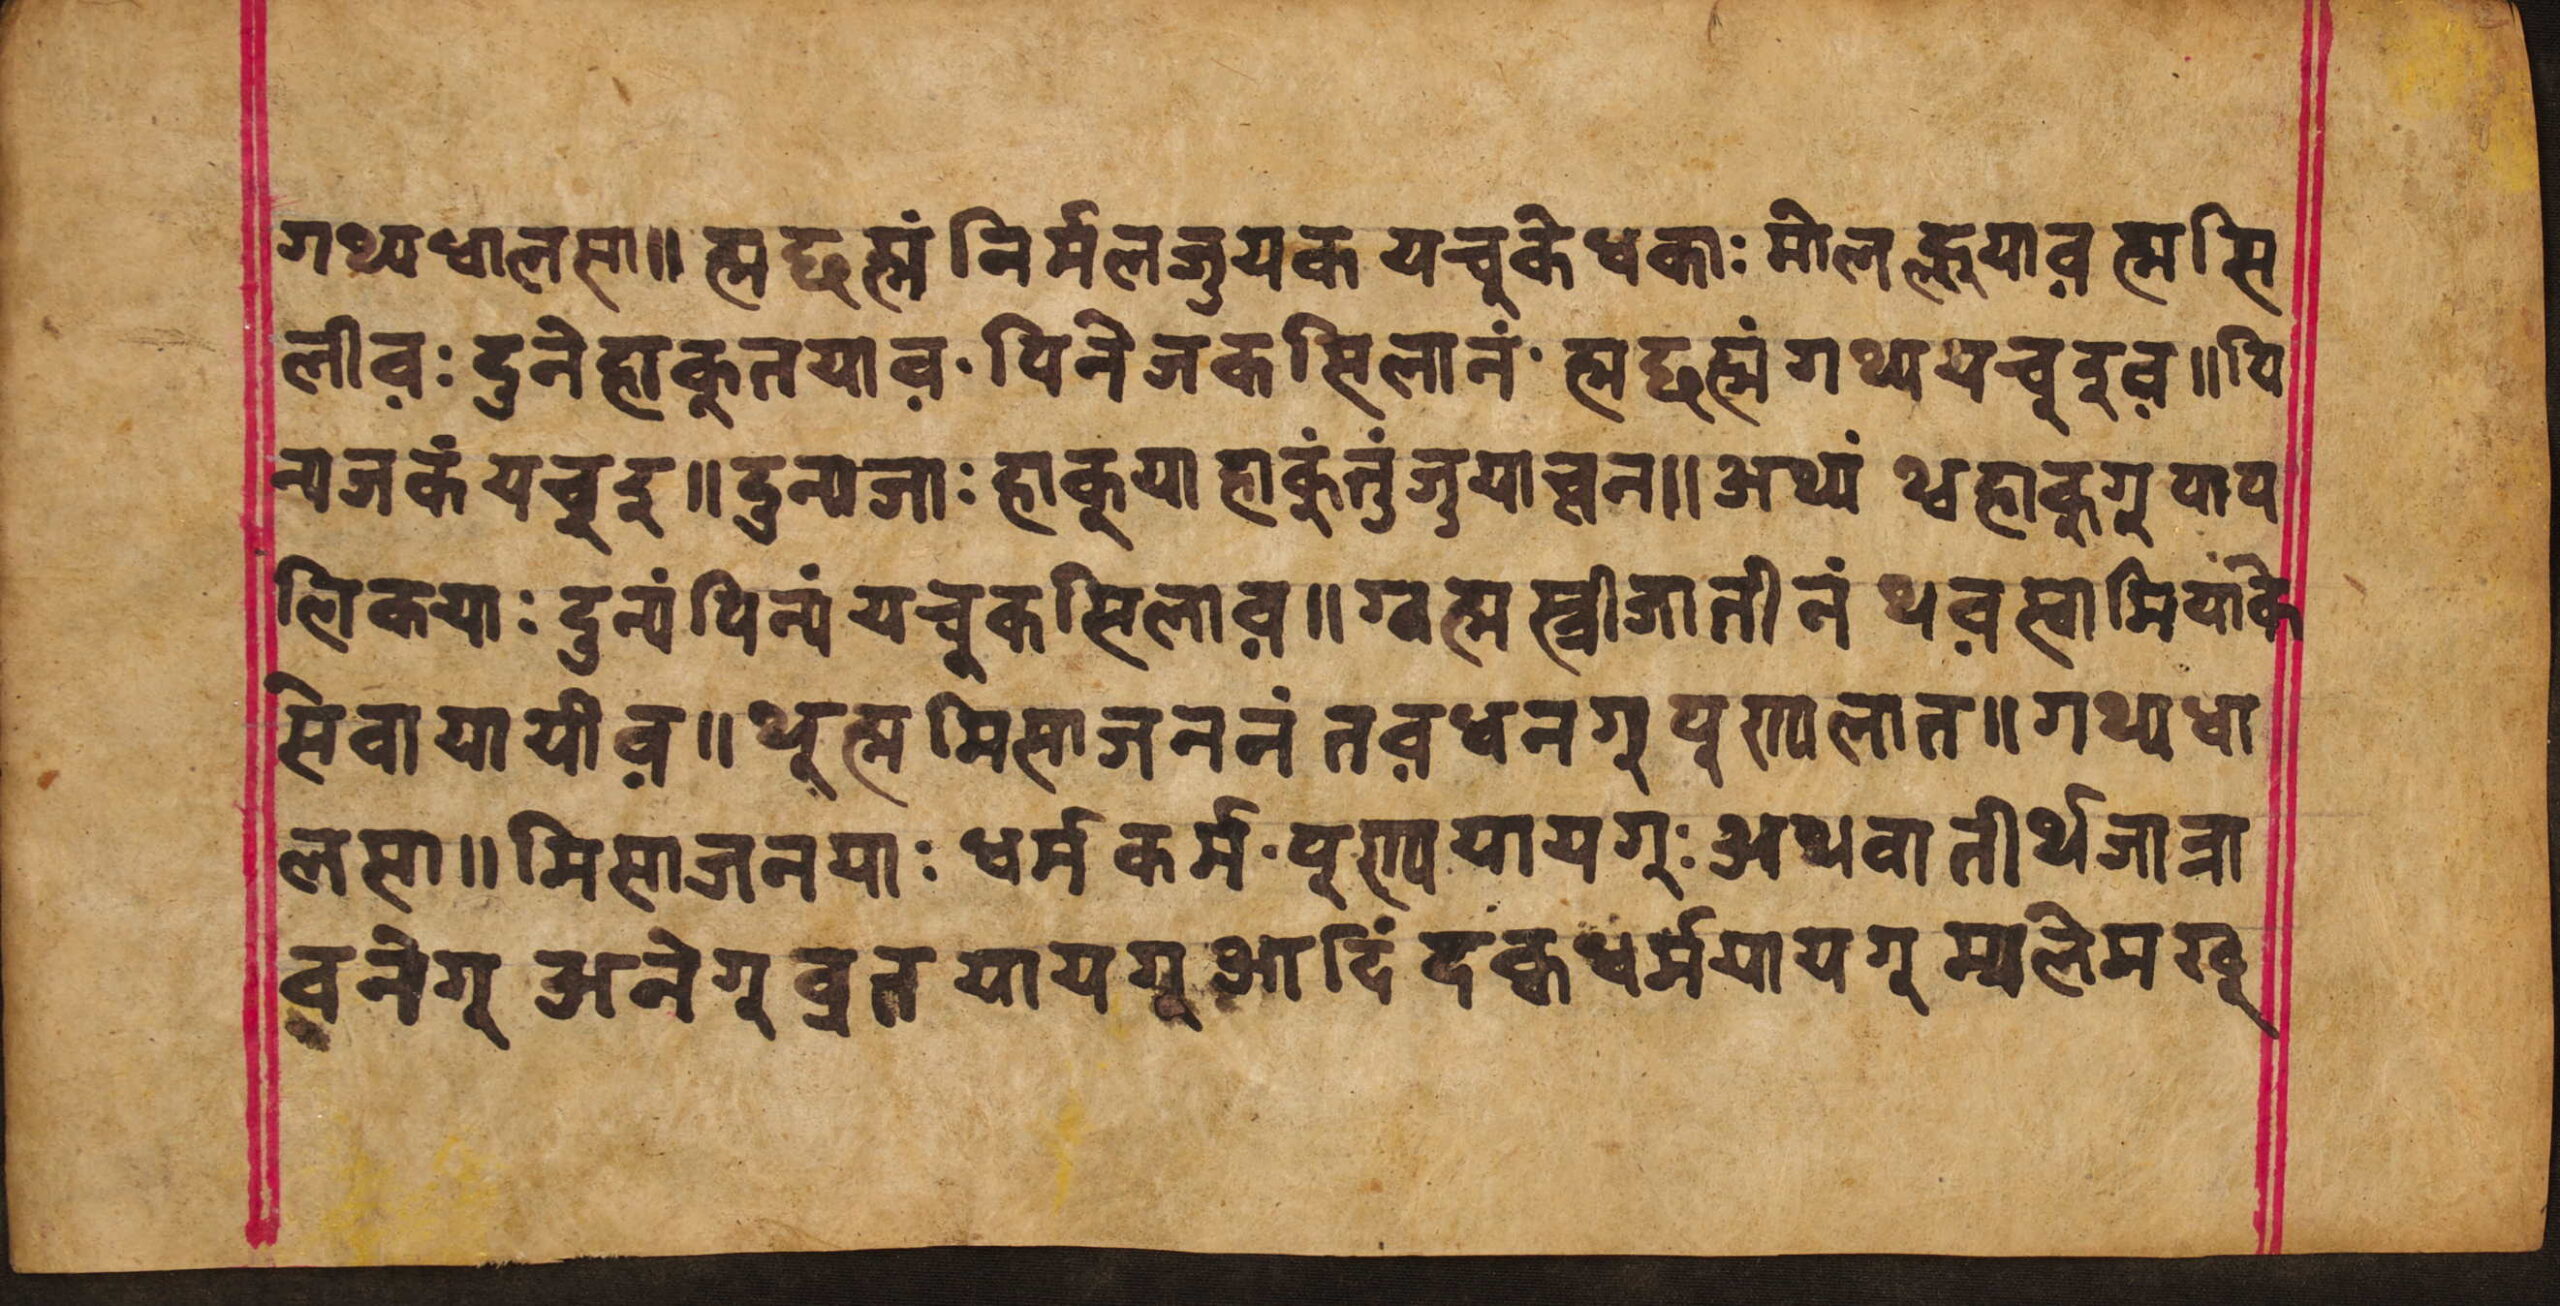 गथ्यधालसा॥ ह्मछह्मं निर्मलजुयक यचुकेधकाः मोलल्हुयाव़ ह्मसि
लीव़ः दुनेहाकुतयाव़· पिनेजकसिलानं· ह्मछह्मं गथ्ययचुदुव़॥ पि
न्यजकं यचुदु॥ दुन्यजाः हाकुया हाकुंतुंजुयाच्वन॥ अथ्यं थ्वहाकुगु पाप
लिकयाः दुन्यं पिन्यं यचुक सिलाव़॥ ग्वह्म स्त्रीजातीनं थव़स्वामियाके
सेवायायीव़॥ थुह्म मिसाजननं तव़धनगु पूण्यलात॥ गथ्यधा
लसा॥ मिसाजनयाः धर्म कर्म· पूण्ययायगुः अथवा तीर्थजात्रा
वनेगु अनेगु व्रत यायगु आदिं दक्वधर्मयायगु म्वालेमखु